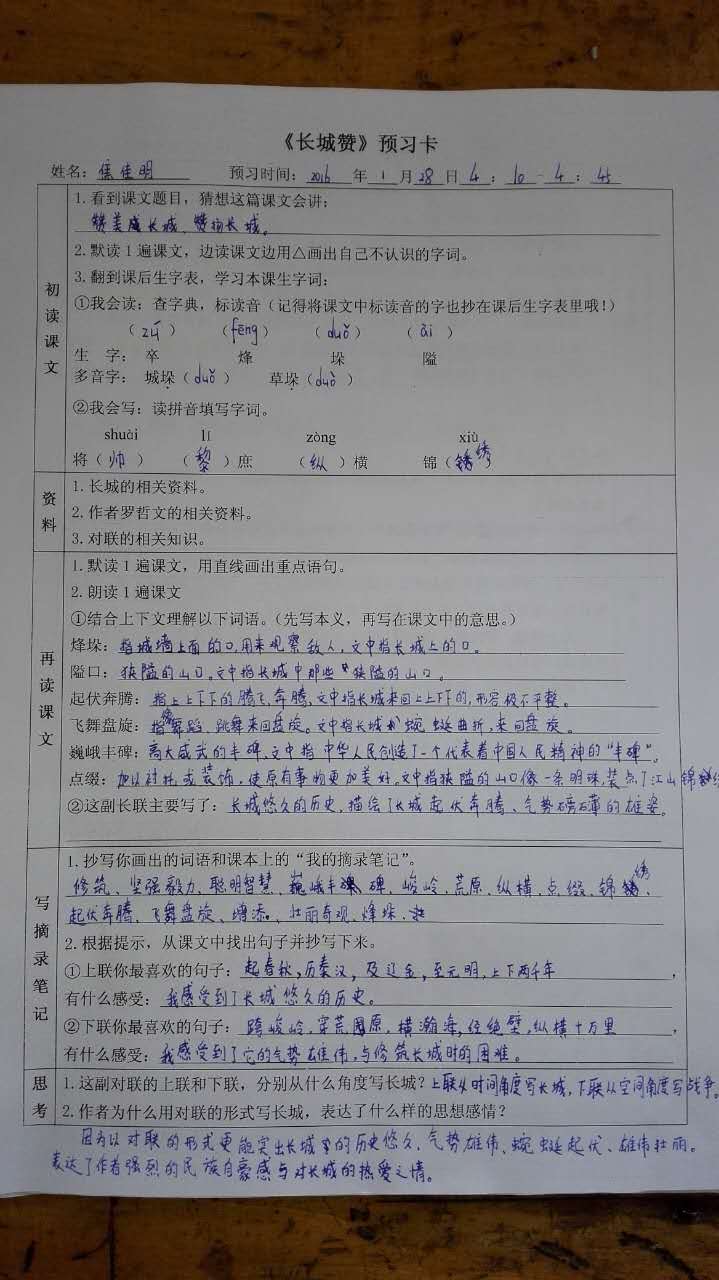 《长城赞》预习卡
姓名：焦佳明 预习时间：2016 年 1 月 28 日 4 ： 10 - 4 ： 45
初读课文
1.看到课文题目，猜想这篇课文会讲：
赞美长城、赞扬长城。
2.默读1遍课文，边读课文边用△画出自己不认识的字词。
3.翻到课后生字表，学习本课生字词：
①我会读：查字典，标读音（记得将课文中标读音的字也抄在课后生字表里哦！）
（zú）（fēng）（duǒ）（ài）
生 字：卒 烽 垛 隘
多音字：城垛（duǒ） 草垛（duò）
②我会写：读拼音填写字词。
shuài lī zòng xiù
将（帅） （黎）庶 （纵）横 锦（绣）
资料
1.长城的相关资料。
2.作者罗哲文的相关资料。
3.对联的相关知识。
再读课文
1.默读1遍课文，用直线画出重点语句。
2.朗读1遍课文
①结合上下文理解以下词语。（先写本义，再写在课文中的意思。）
烽垛：指城墙上面的口，用来观察敌人，文中指长城上的口。
隘口：狭隘的山口。文中指长城中那些狭隘的山口。
起伏奔腾：指上上下下的腾飞，奔腾，文中指长城来回上上下下的，形容极不平整。
飞舞盘旋：指舞蹈、跳舞来回盘旋。文中指长城蜿蜒曲折，来回盘旋。
巍峨丰碑：高大威武的丰碑，文中指中华人民创造了一个代表着中国人民精神的“丰碑”。
点缀：加以衬托或装饰，使原有事物更加美好。文中指狭隘的山口像一条明珠，装点了江山锦绣
②这副长联主要写了：长城悠久的历史，描绘了长城起伏奔腾、气势磅礴的雄姿。
写摘录笔记
1.抄写你画出的词语和课本上的“我的摘录笔记”。
修筑、坚强毅力、聪明智慧、巍峨丰碑、峻岭、荒原、纵横、点缀、锦绣、
起伏奔腾、飞舞盘旋、增添、壮丽奇观、烽垛、壮
2.根据提示，从课文中找出句子并抄写下来。
①上联你最喜欢的句子：起春秋，历秦汉，及辽金，至元明，上下两千年，
有什么感受：我感受到了长城悠久的历史。
②下联你最喜欢的句子：跨峻岭，穿荒原，横瀚海，经绝壁，纵横十万里，
有什么感受：我感受到了它的气势雄伟，与修筑长城时的困难。
思考
1.这副对联的上联和下联，分别从什么角度写长城？上联从时间角度写长城，下联从空间角度写战争。
2.作者为什么用对联的形式写长城，表达了什么样的思想感情？
因为以对联的形式更能突出长城的历史悠久、气势雄伟、蜿蜒起伏、雄伟壮丽。
表达了作者强烈的民族自豪感与对长城的热爱之情。